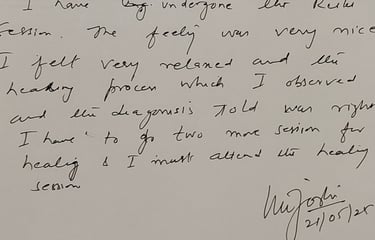 I have undergone the Reiki
session. The feelig was very nice
I felt very relaxed and the
healing process which I observed
and the diagonisis told was right
I have to go two more session for
healig & I must attend the healing
session
21/05/25